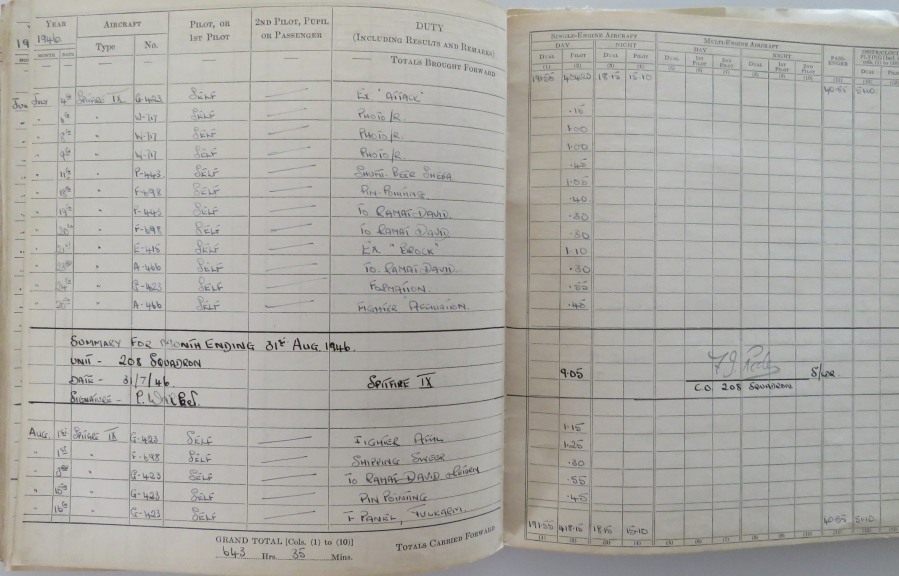 YEAR 1946 AIRCRAFT PILOT, OR 1ST PILOT 2ND PILOT, PUPIL OR PASSENGER DUTY (INCLUDING RESULTS AND REMARKS)
MONTH DATE Type No.
TOTALS BROUGHT FORWARD
July 4th SPITFIRE IX G-423 SELF EX "ATTACK"
" " W-717 SELF PHOTO/R.
" 8th " W-717 SELF PHOTO/R.
" 9th " W-717 SELF PHOTO/R.
" 11th " P-443 SELF BEER SHEBA
" " F-698 SELF PIN-POINTING
" 19th " SELF TO RAMAT DAVID.
" 20th " F-698 SELF TO RAMAT DAVID
" 21st " E-415 SELF EX "BROCK"
" " A-466 SELF TO RAMAT DAVID.
" 24th " G-423 SELF FORMATION.
" " A-466 SELF FIGHTER AFFILIATION.
SUMMARY FOR MONTH ENDING 31st AUG. 1946.
UNIT - 208 SQUADRON
DATE - 31/7/46. SPITFIRE IX
SIGNATURE - P.
AUG. 1st SPITFIRE IX G-423 SELF FIGHTER AFFIL
" 1st " F-698 SELF SHIPPING SWEEP
" " G-423 SELF TO RAMAT DAVID & RETURN
" " G-423 SELF PIN POINTING
" 16th " G-423 SELF PANEL, TULKARM.
GRAND TOTAL [Cols. (1) to (10)]
643 Hrs. 35 Mins.
TOTALS CARRIED FORWARD
SINGLE-ENGINE AIRCRAFT MULTI-ENGINE AIRCRAFT PASS-ENGER
DAY NIGHT DAY NIGHT
DUAL PILOT DUAL PILOT DUAL 1ST PILOT 2ND PILOT DUAL 1ST PILOT 2ND PILOT DUAL PILOT
(1) (2) (3) (4) (5) (6) (7) (8) (9) (10)
18.15 15.10 40.55 51.00
.15
1.00
1.00
.45
1.05
.40
.30
.30
1.10
.30
.55
.45
9.05 S/LDR.
C.O. 208 SQUADRON
1.15
1.25
.30
.55
.45
191.55 418.15 18.15 15.10 40.55 51.00
(1) (2) (3) (4) (5) (6) (7) (8) (9) (10)